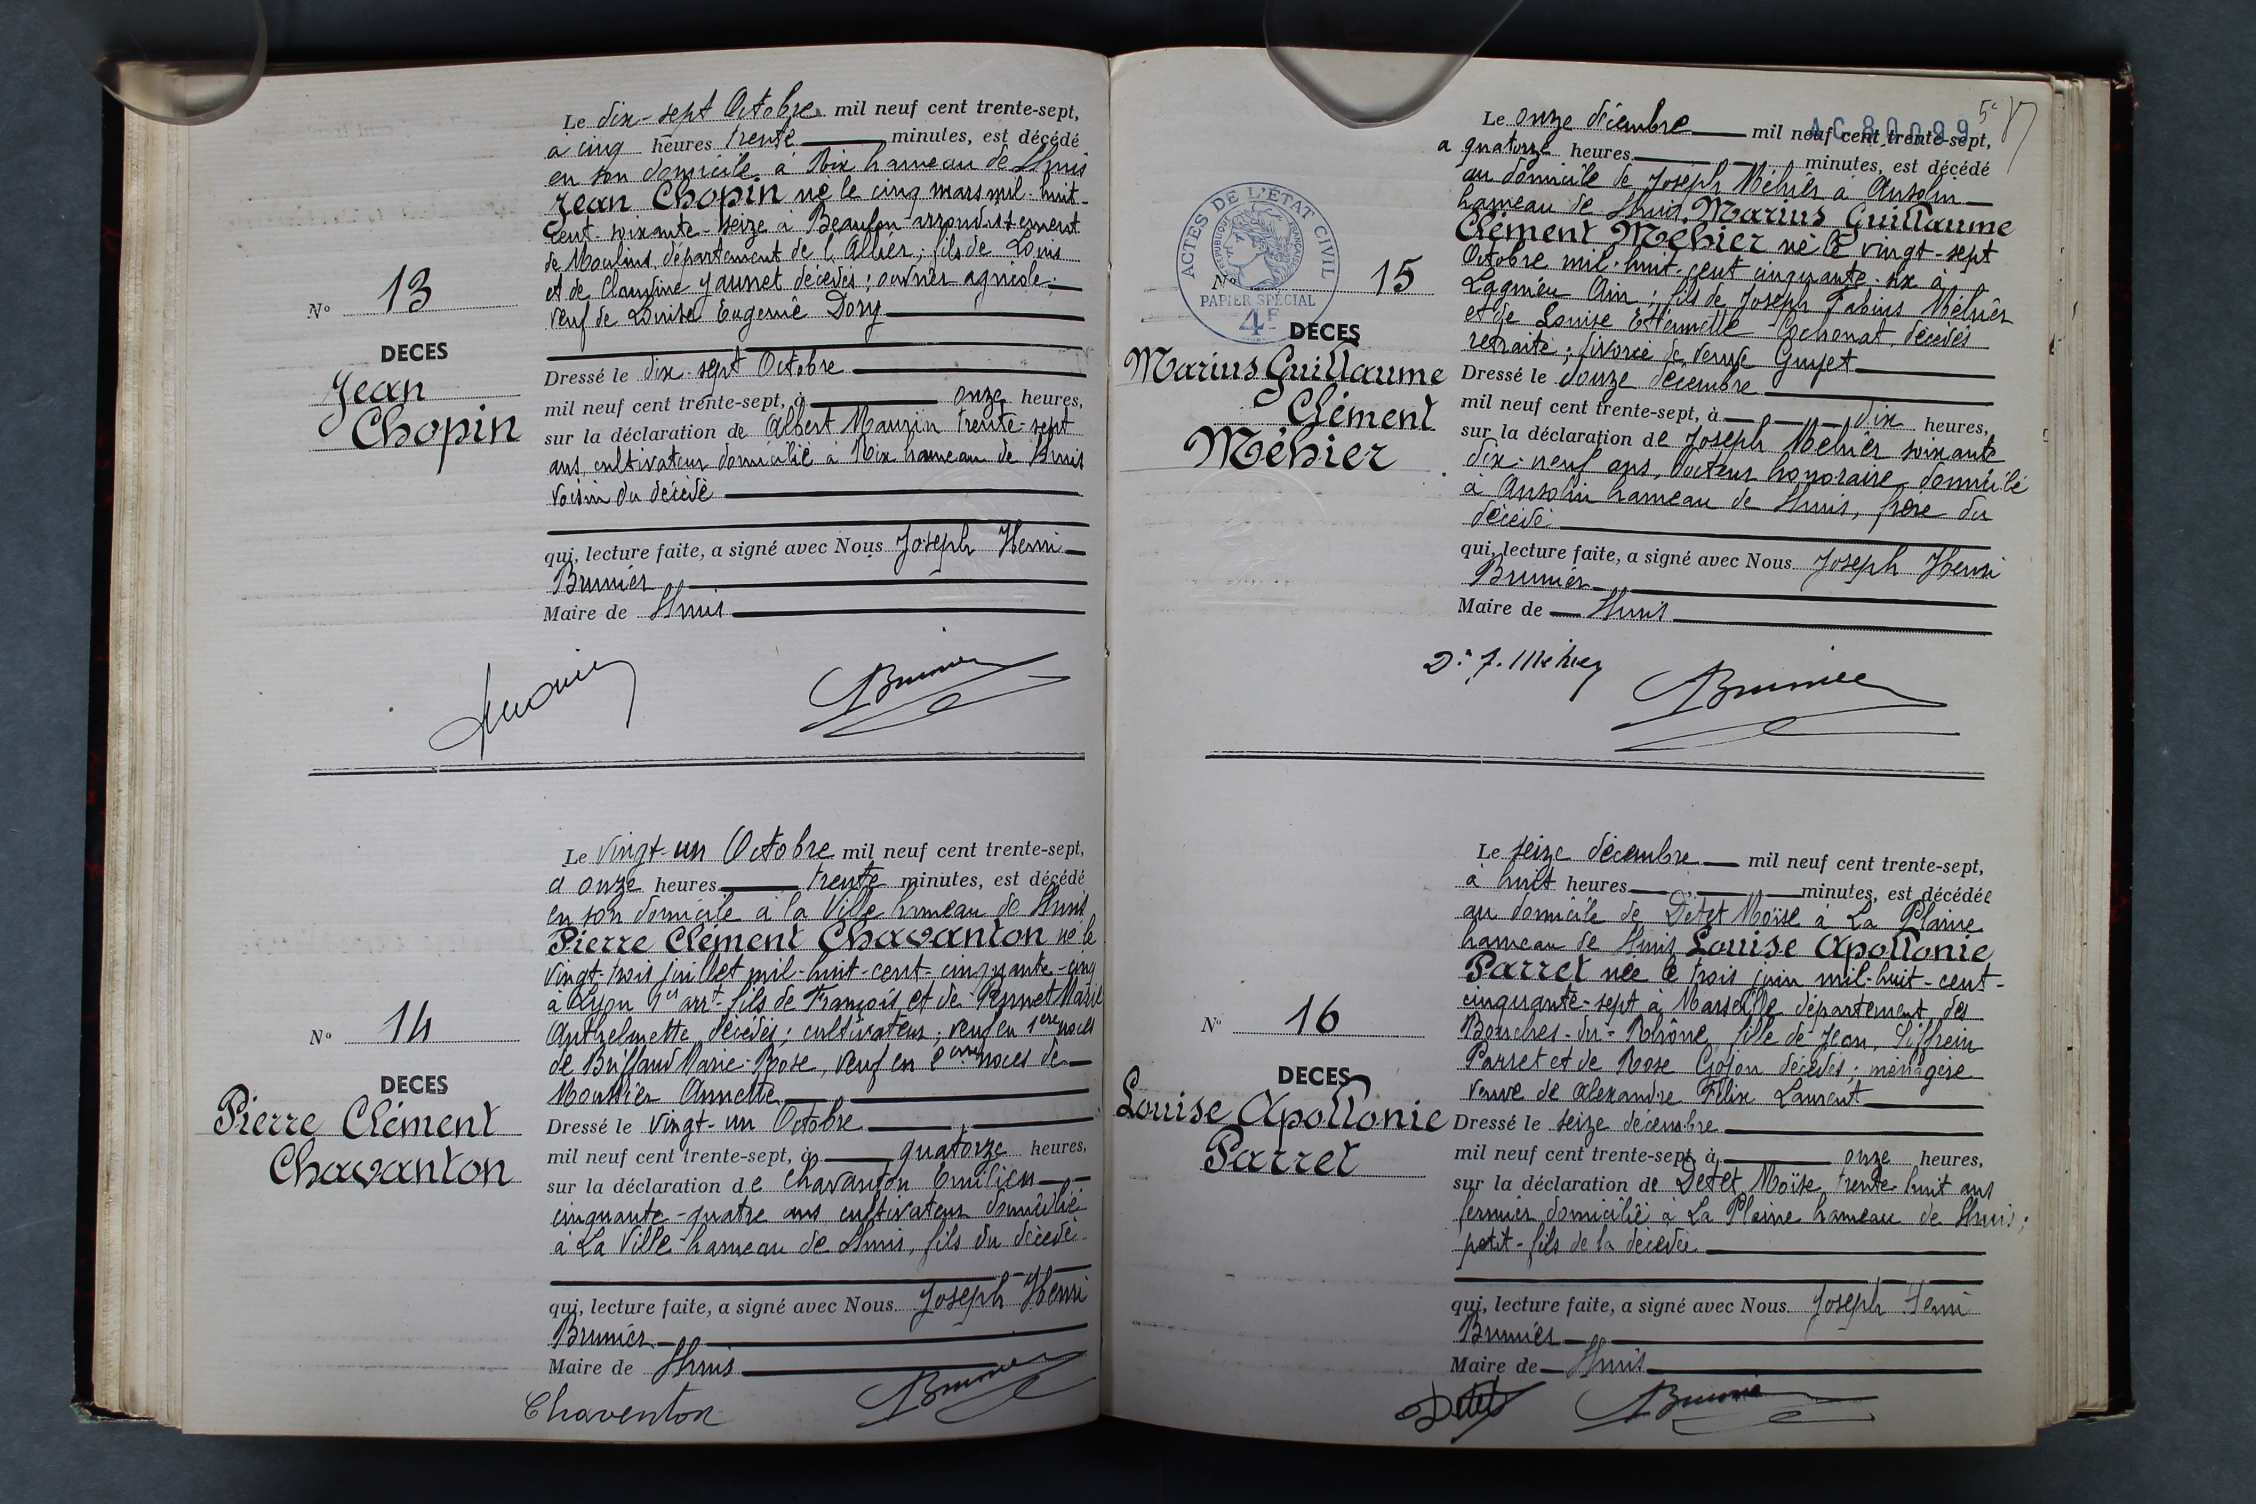 Le dix-sept Octobre mil neuf cent trente-sept,
à cinq heures trente minutes, est décédé
en son domicile à Rix hameau de Lhuis
Jean Chopin né le cinq mars mil-huit-
cent-soixante-seize à Beaulon arrondissement
de Moulins département de l'Allier; fils de Louis
et de Claudine Jaunet décédés; ouvrier agricole;
veuf de Louise Eugenie Dory
No 13
DECES
Jean
Chopin
Dressé le dix-sept Octobre
mil neuf cent trente-sept, à onze heures,
sur la déclaration de Albert Mauzin trente-sept
ans, cultivateur domicilié à Rix hameau de Lhuis
voisin du décédé
qui, lecture faite, a signé avec Nous Joseph Henri
Brunier
Maire de Lhuis
Brunier
Le vingt-un Octobre mil neuf cent trente-sept,
à onze heures trente minutes, est décédé
en son domicile à la Ville hameau de Lhuis
Pierre Clément Chavanton né le
vingt-trois juillet mil-huit-cent-cinquante-cinq
à Lyon 1er arrt fils de François et de Perret Marie
Anthelmette décédés; cultivateur; veuf en 1ère noces
de Briffaud Marie-Rose, veuf en 2ème noces de
Annette
No 14
DECES
Pierre Clément
Chavanton
Dressé le vingt-un Octobre
mil neuf cent trente-sept, à quatorze heures,
sur la déclaration de Chavanton Emilien
cinquante-quatre ans cultivateur domicilié
à La Ville hameau de Lhuis, fils du décédé
qui, lecture faite, a signé avec Nous Joseph Henri
Brunier
Maire de Lhuis
Chavanton Brunier
AC 80099
5e
Le onze décembre mil neuf cent trente-sept,
à quatorze heures minutes, est décédé
au domicile de Joseph Méhier à Ansolin
hameau de Lhuis, Marius Guillaume
Clément Méhier né le vingt-sept
Octobre mil-huit-cent cinquante-six à
Lagnieu Ain; fils de Joseph Fabius Méhier
et de Louise Etiennette Cochonat, décédés
retraité; divorcé de Guyet
ACTES DE L'ETAT CIVIL
REPUBLIQUE FRANÇAISE
PAPIER SPÉCIAL
4F
No 15
DECES
Marius Guillaume
Clément
Méhier
Dressé le douze décembre
mil neuf cent trente-sept, à dix heures,
sur la déclaration de Joseph Méhier soixante
dix-neuf ans, docteur honoraire domicilié
à Ansolin hameau de Lhuis, frère du
décédé
qui, lecture faite, a signé avec Nous Joseph Henri
Brunier
Maire de Lhuis
Dr J. Méhier Brunier
Le seize décembre mil neuf cent trente-sept,
à huit heures minutes, est décédée
au domicile de Detet Moïse à La Plaine
hameau de Lhuis Louise Apollonie
Parret née le trois juin mil-huit-cent-
cinquante-sept à Marseille département des
Bouches-du-Rhône, fille de Jean, Siffrein
Parret et de Rose Gojon décédés; ménagère
veuve de Alexandre Félix Laurent
No 16
DECES
Louise Apollonie
Parret
Dressé le seize décembre
mil neuf cent trente-sept à onze heures,
sur la déclaration de Detet Moïse trente-huit ans
fermier domicilié à La Plaine hameau de Lhuis;
petit-fils de la décédée
qui, lecture faite, a signé avec Nous Joseph Henri
Brunier
Maire de Lhuis
Detet Brunier